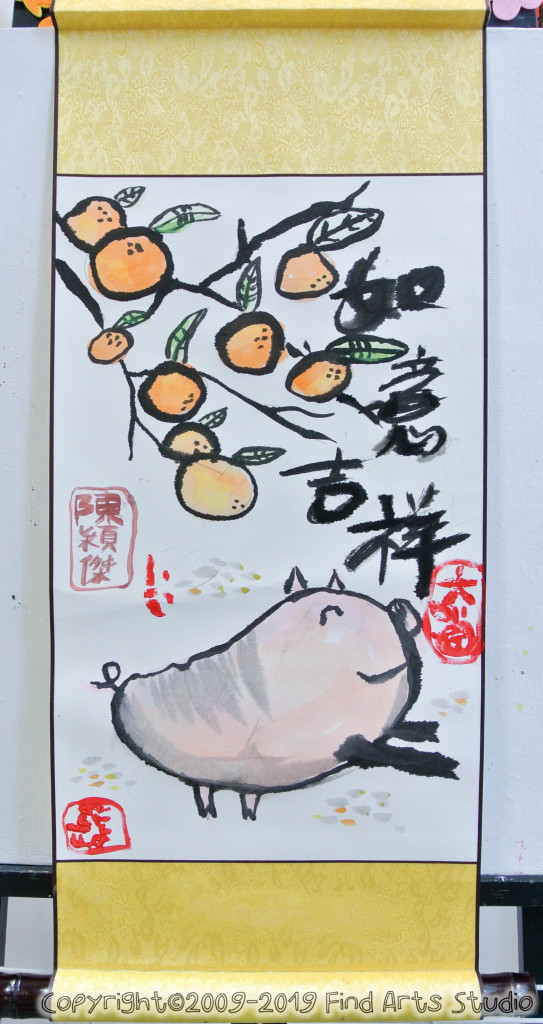 如
意
吉
祥
陳穎傑
大
Copyright©2009-2019 Find Arts Studio